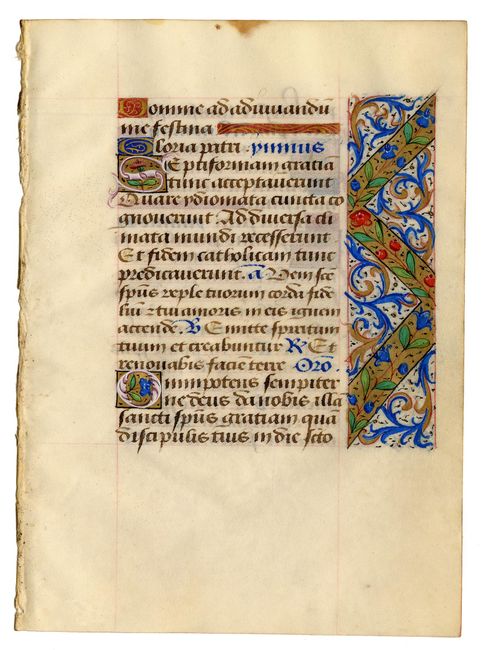 Domine ad adiuvandū
me festina
Gloria patri. ymnus
Septiformam gratiā
tunc acceptaverunt
Quare ydiomata cuncta co
gnoverunt. Ad diversa cli
mata mundi recesserunt.
Et fidem catholicam tunc
predicaverunt. ā Veni scē
spūs reple tuorum corda fide
liū ⁊ tui amoris in eis ignem
accende. V Emitte spiritum
tuum et creabuntur R Et
renovabis faciē terre Orō
Omnipotens sempiter
ne deus da nobis illā
sancti spūs gratiam quā
discipulis tuis in die scto